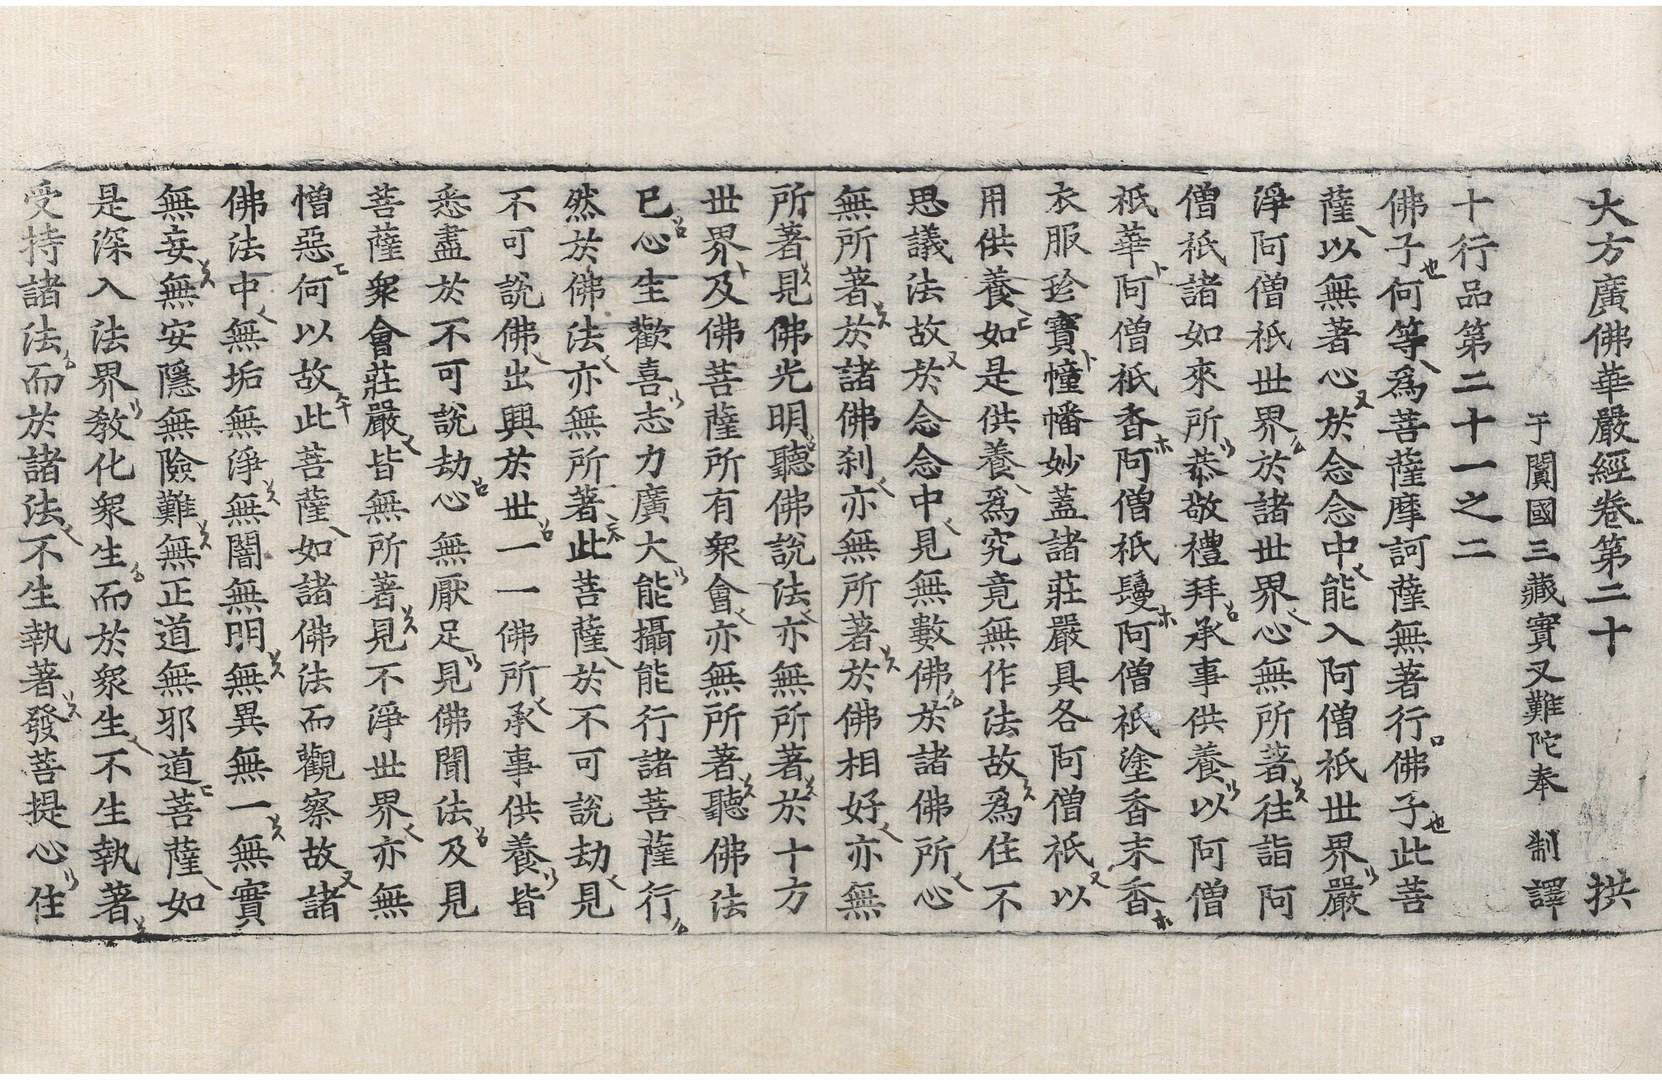 大方廣佛華嚴經卷第二十　拱
于闐國三藏實叉難陀奉　制譯
十行品第二十一之二
佛子何等爲菩薩摩訶薩無著行佛子此菩
薩以無著心於念念中能入阿僧祇世界嚴
淨阿僧祇世界於諸世界心無所著往詣阿
僧祇諸如來所恭敬禮拜承事供養以阿僧
祇華阿僧祇香阿僧祇鬘阿僧祇塗香末香
衣服珍寶幢幡妙蓋諸莊嚴具各阿僧祇以
用供養如是供養爲究竟無作法故爲住不
思議法故於念念中見無數佛於諸佛所心
無所著於諸佛刹亦無所著於佛相好亦無
所著見佛光明聽佛說法亦無所著於十方
世界及佛菩薩所有衆會亦無所著聽佛法
已心生歡喜志力廣大能攝能行諸菩薩行
然於佛法亦無所著此菩薩於不可說劫見
不可說佛出興於世一一佛所承事供養皆
悉盡於不可說劫心無厭足見佛聞法及見
菩薩衆會莊嚴皆無所著見不淨世界亦無
憎惡何以故此菩薩如諸佛法而觀察故諸
佛法中無垢無淨無闇無明無異無一無實
無妄無安隱無險難無正道無邪道菩薩如
是深入法界教化衆生而於衆生不生執著
受持諸法而於諸法不生執著發菩提心住